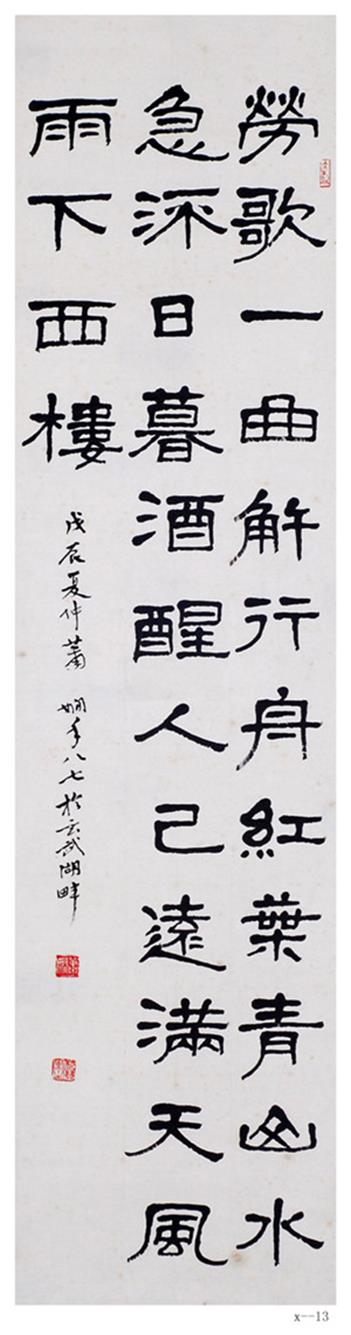 勞歌一曲解行舟紅葉青山水
急流日暮酒醒人已遠滿天風
雨下西樓
戊辰夏仲蕭嫻年八七於玄武湖畔
x--13